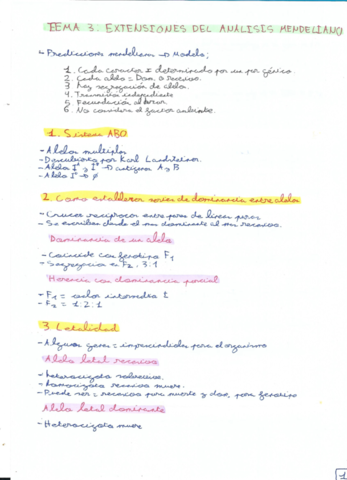 TEMA 3. EXTENSIONES DEL ANALISIS MENDELIANO
↳ Predicciones mendelianas → Modelo;
1. Cada caracter I determinado por un par génico
2. Cada alelo = Dom. o recesivo.
3. Hay segregación de alelos.
4. Transmisión independiente
5. Fecundación al azar
6. No considera el factor ambiente.
1. Sistema ABO
- Alelos multiples
- Descubierto por Karl Landsteiner.
- Alelos Iᴬ y Iᴮ → antígenos A y B
- Alelo I° → ø
2. Como establecer series de dominancia entre alelos
- Cruces recíprocos entre pares de líneas puras
- Se escriben desde el más dominante al más recesivo.
Dominancia de un alelo
- Coincide con fenotipo F₁
- Segregación en F₂: 3:1
Herencia con dominancia parcial
- F₁ = color intermedio
- F₂ = 1:2:1
3. Letalidad
- Algunos genes = imprescindibles para el organismo
Alelo letal recesivo
- heterocigoto sobrevive.
- homocigoto recesivo muere.
- Puede ser = recesivo para muerte y dom. para fenotipo
Alelo letal dominante
- Heterocigoto muere
1